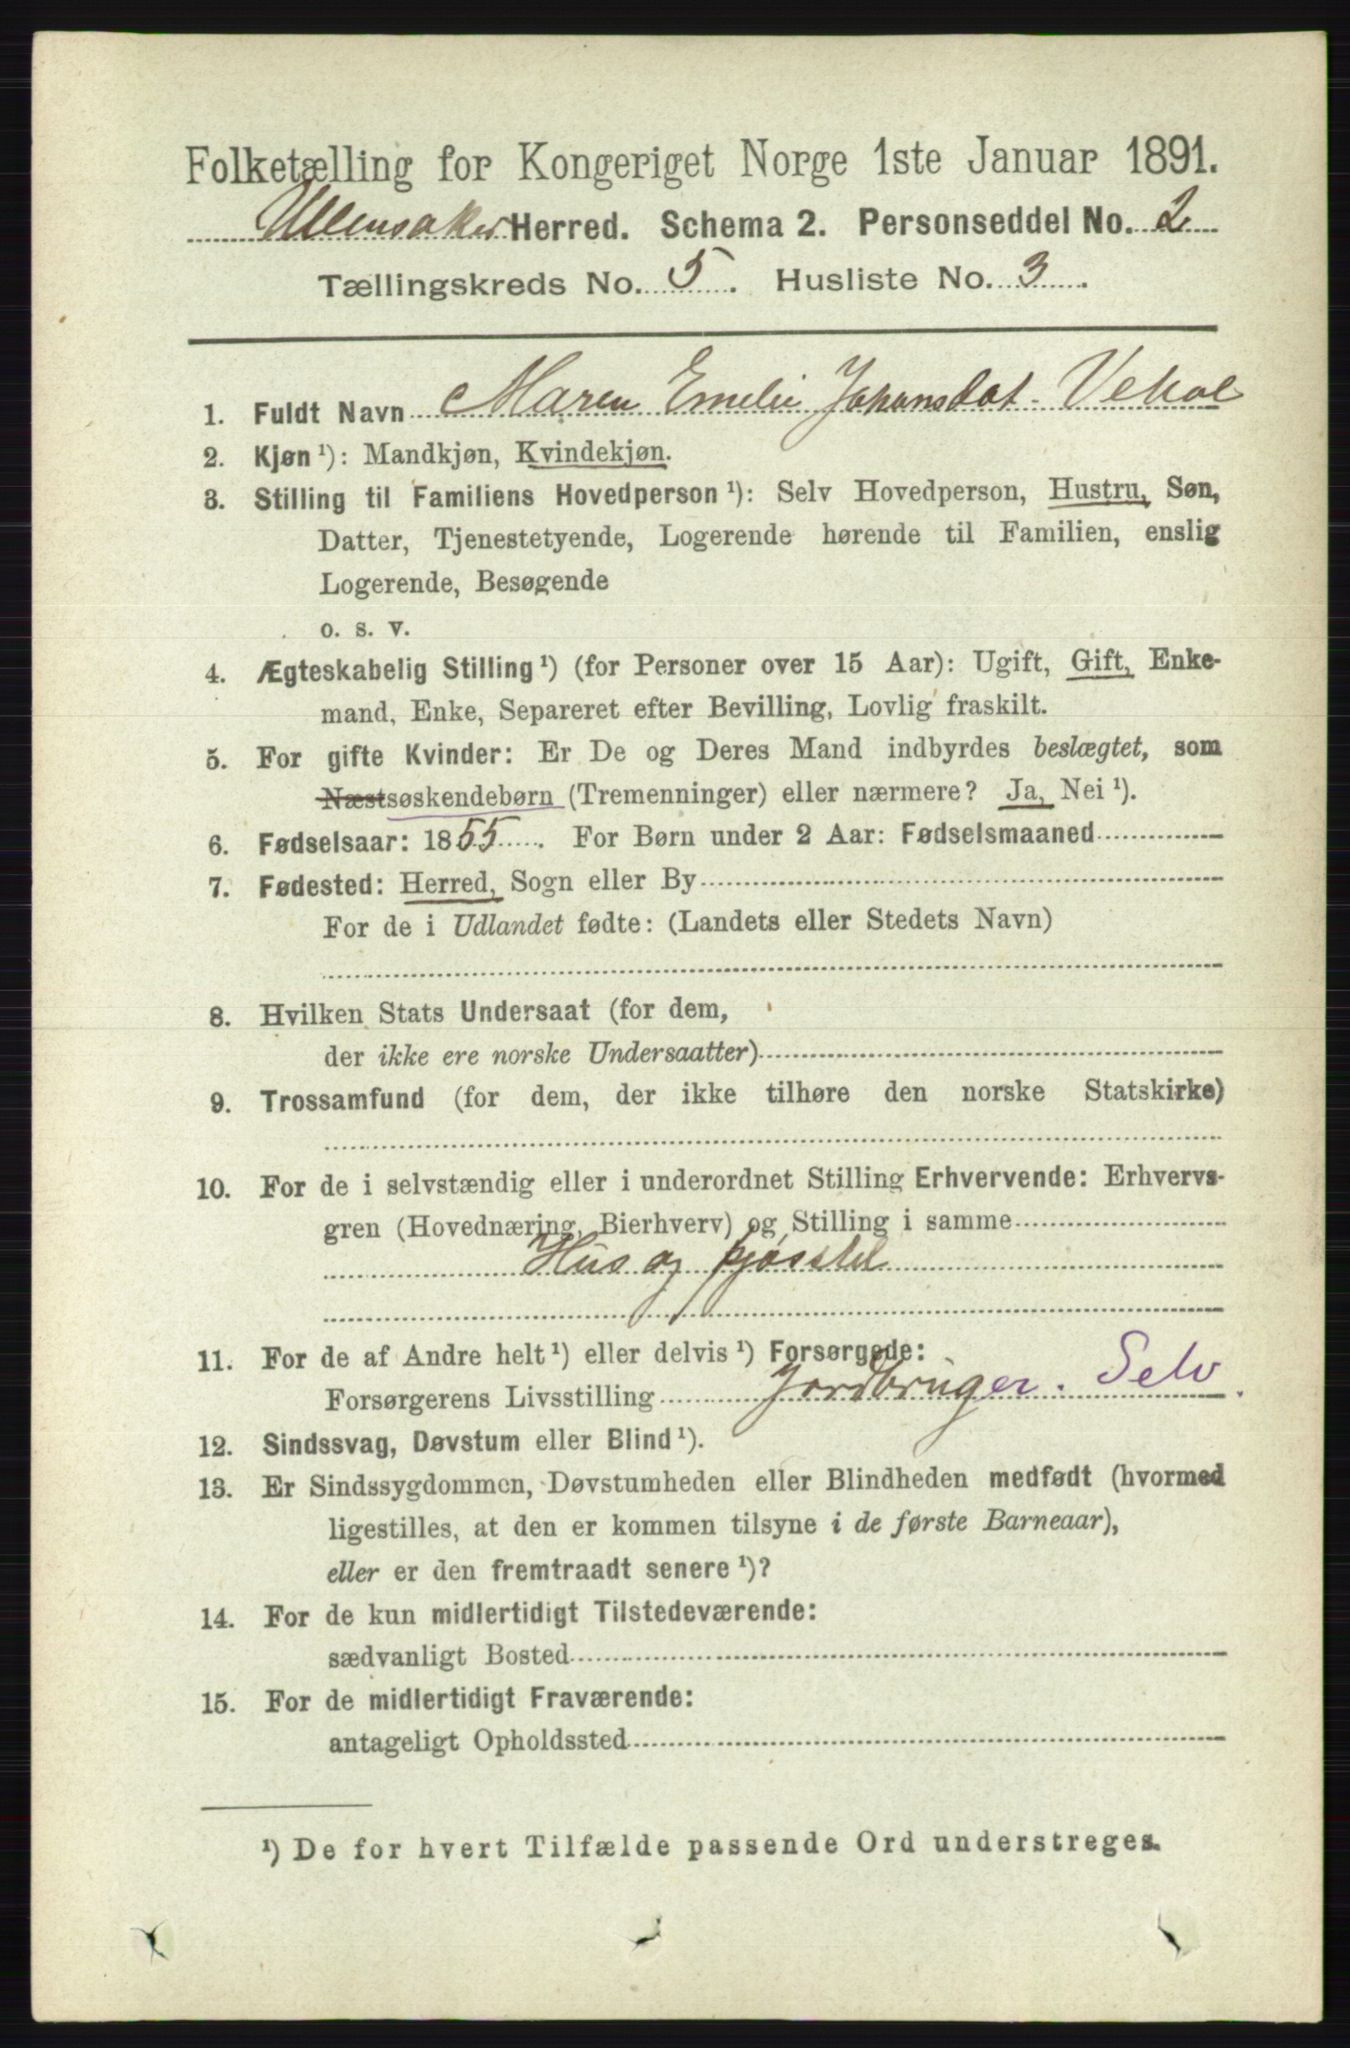 Folketælling for Kongeriget Norge 1ste Januar 1891.
Ullensaker Herred. Schema 2. Personseddel No. 2
Tællingskreds No. 5. Husliste No. 3.
1. Fuldt Navn Maren Emelie Johansdat.
2. Kjøn ¹): Mandkjøn, Kvindekjøn.
3. Stilling til Familiens Hovedperson ¹): Selv Hovedperson, Hustru, Søn,
Datter, Tjenestetyende, Logerende hørende til Familien, enslig
Logerende, Besøgende
o. s. v.
4. Ægteskabelig Stilling ¹) (for Personer over 15 Aar): Ugift, Gift, Enke-
mand, Enke, Separeret efter Bevilling, Lovlig fraskilt.
5. For gifte Kvinder: Er De og Deres Mand indbyrdes beslægtet, som
Næstsøskendebørn (Tremenninger) eller nærmere? Ja, Nei ¹).
6. Fødselsaar: 1855. For Børn under 2 Aar: Fødselsmaaned
7. Fødested: Herred, Sogn eller By
For de i Udlandet fødte: (Landets eller Stedets Navn)
8. Hvilken Stats Undersaat (for dem,
der ikke ere norske Undersaatter)
9. Trossamfund (for dem, der ikke tilhøre den norske Statskirke)
10. For de i selvstændig eller i underordnet Stilling Erhvervende: Erhvervs-
gren (Hovednæring, Bierhverv) og Stilling i samme
Hus og fjøsstel
11. For de af Andre helt ¹) eller delvis ¹) Forsørgede:
Forsørgerens Livsstilling Jordbruger. Selv.
12. Sindssvag, Døvstum eller Blind ¹).
13. Er Sindssygdommen, Døvstumheden eller Blindheden medfødt (hvormed
ligestilles, at den er kommen tilsyne i de første Barneaar),
eller er den fremtraadt senere ¹)?
14. For de kun midlertidigt Tilstedeværende:
sædvanligt Bosted
15. For de midlertidigt Fraværende:
antageligt Opholdssted
¹) De for hvert Tilfælde passende Ord understreges.